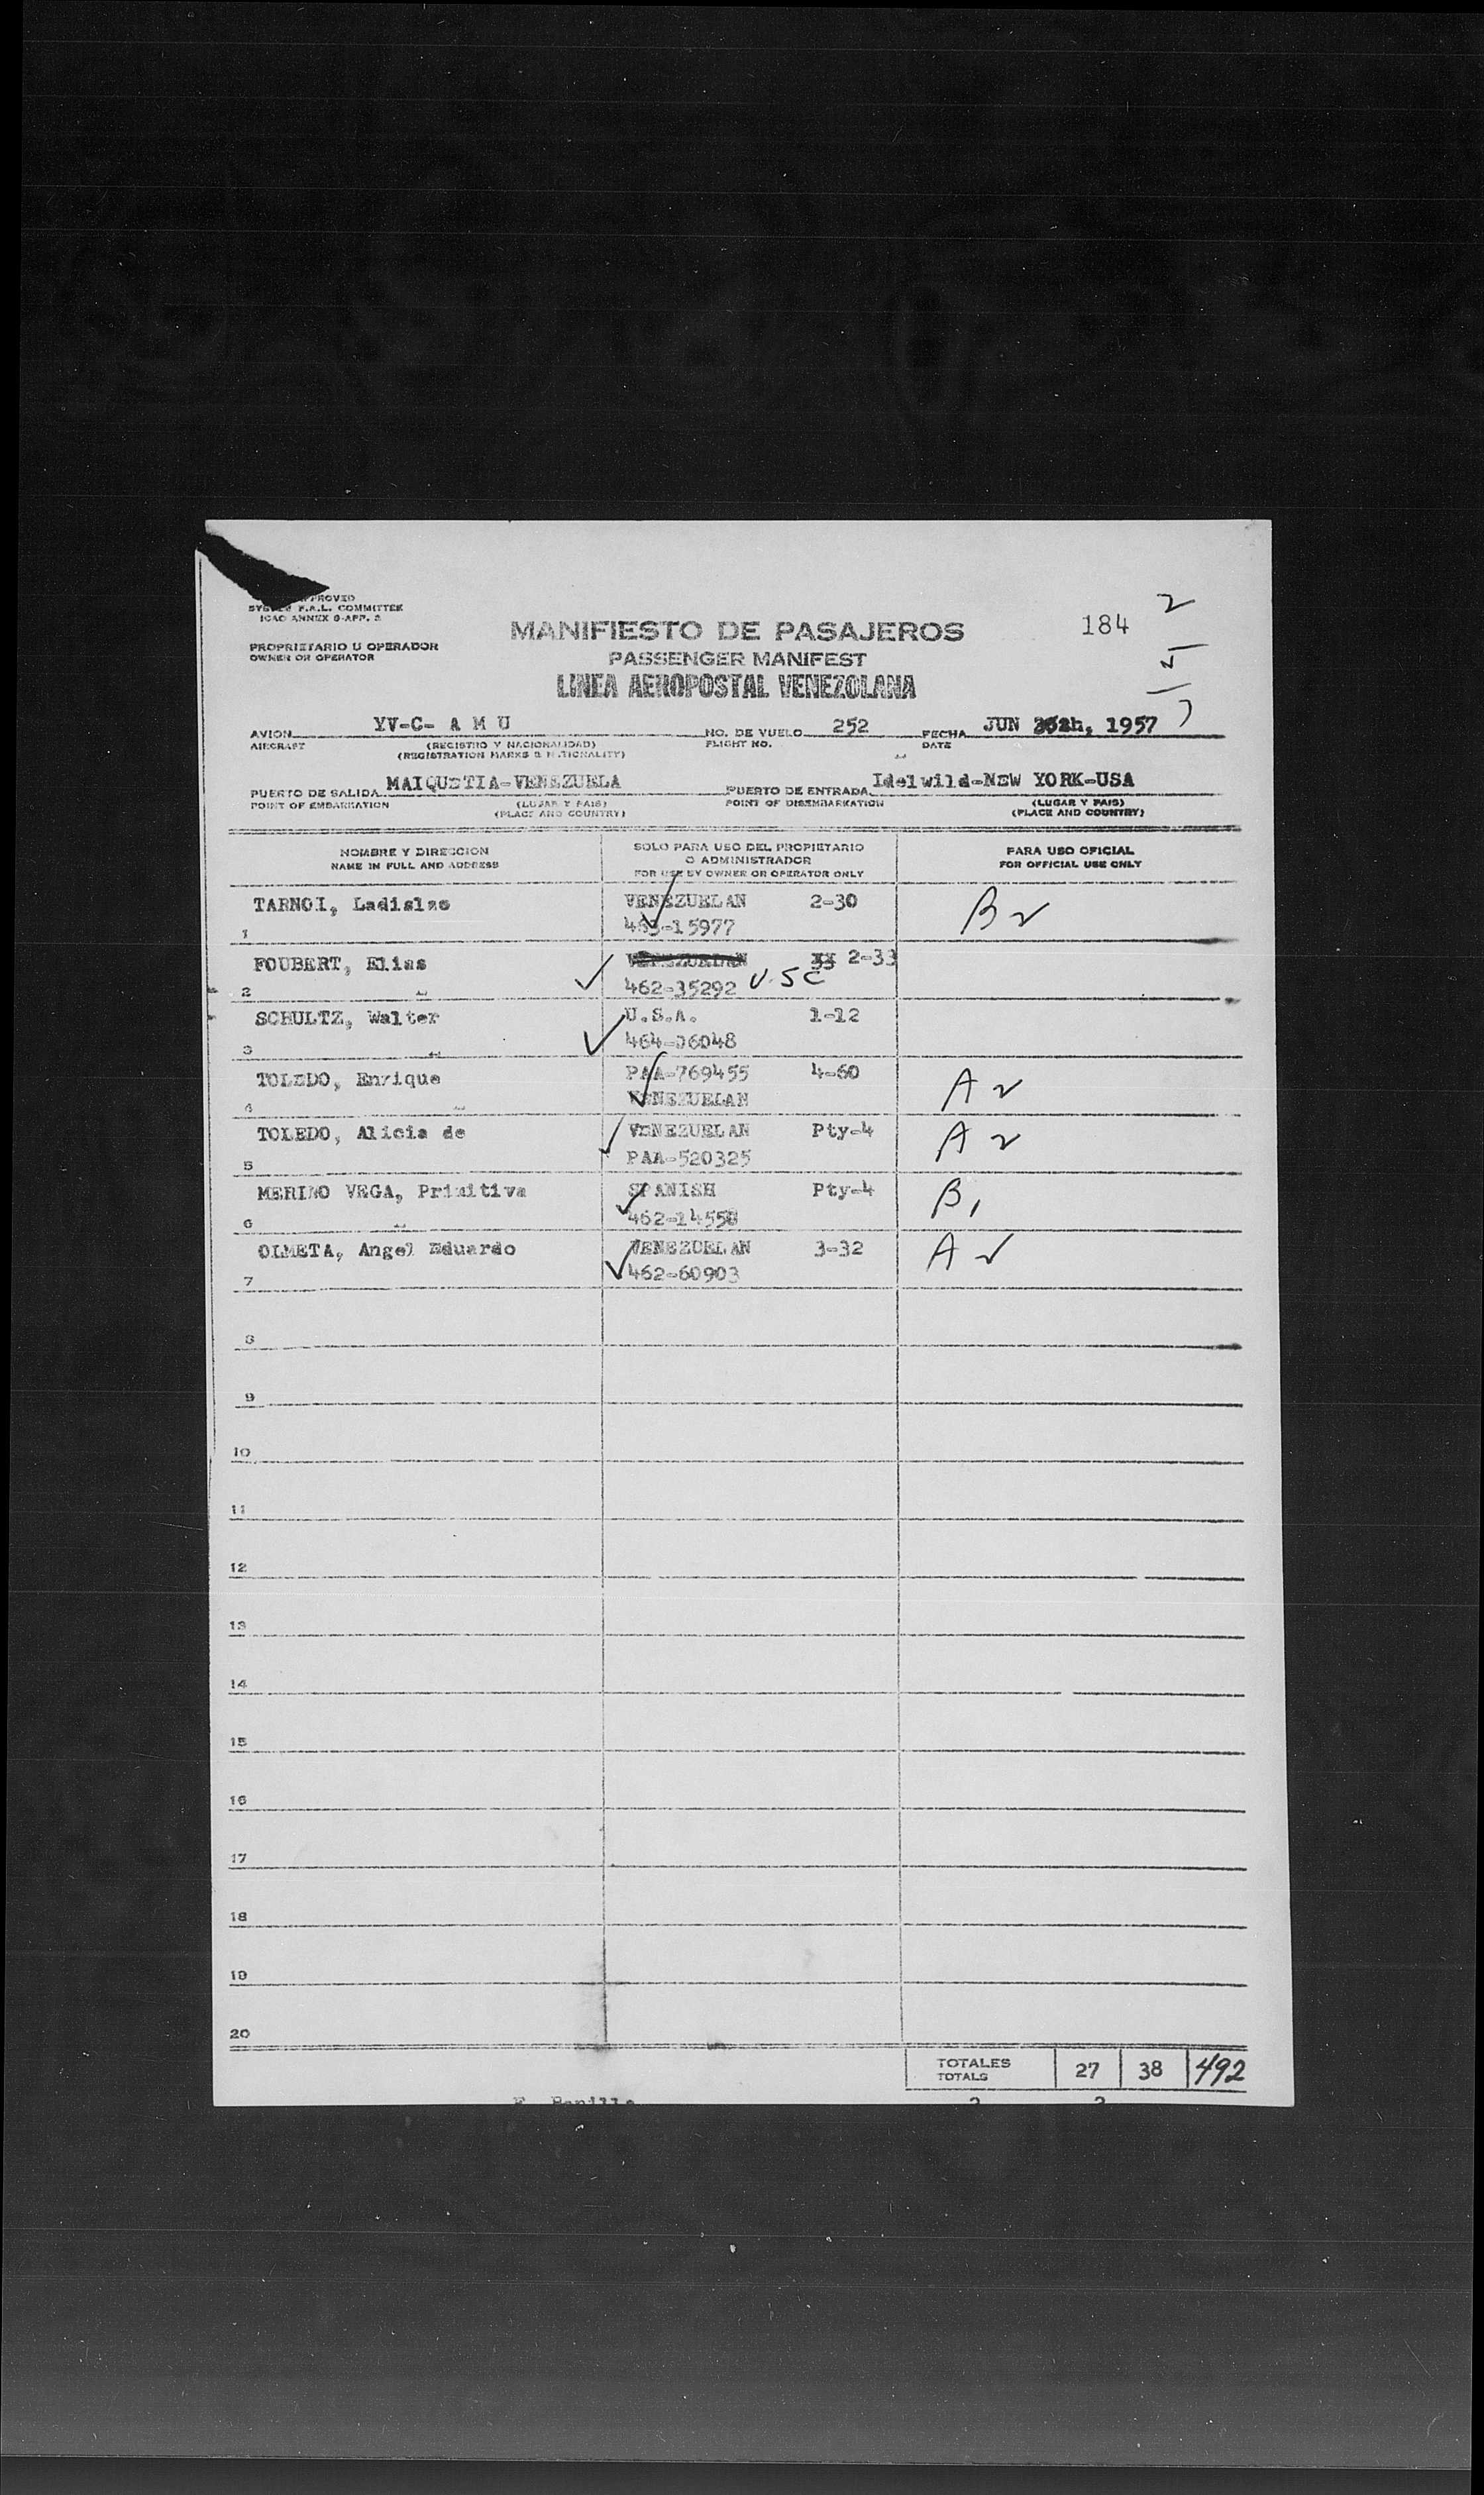 APPROVED
SYSTEM F.A.L. COMMITTEE
ICAO ANNEX 9-APP. 2
184
2
MANIFIESTO DE PASAJEROS
PROPRIETARIO U OPERADOR
OWNER OR OPERATOR
PASSENGER MANIFEST
LINEA AEROPOSTAL VENEZOLANA
AVION YV-C- A M U NO. DE VUELO 252 FECHA JUN 1957
AIRCRAFT (REGISTRO Y NACIONALIDAD) FLIGHT NO. DATE
(REGISTRATION MARKS & NATIONALITY)
PUERTO DE SALIDA MAIQUETIA-VENEZUELA PUERTO DE ENTRADA Idelwild-NEW YORK-USA
POINT OF EMBARKATION (LUGAR Y PAIS) POINT OF DISEMBARKATION (LUGAR Y PAIS)
(PLACE AND COUNTRY) (PLACE AND COUNTRY)
NOMBRE Y DIRECCION SOLO PARA USO DEL PROPIETARIO PARA USO OFICIAL
NAME IN FULL AND ADDRESS O ADMINISTRADOR FOR OFFICIAL USE ONLY
FOR USE BY OWNER OR OPERATOR ONLY
TARNOI, Ladislao VENEZUELAN 2-30 B2
1 463-15977
FOUBERT, Elias VENEZUELAN XX 2-33
2 462-35292 U.S.C
SCHULTZ, Walter U.S.A. 1-12
3 464-06048
TOLEDO, Enrique PAA-769455 4-60 A2
4 VENEZUELAN
TOLEDO, Alicia de VENEZUELAN Pty-4 A2
5 PAA-520325
MERINO VEGA, Primitiva SPANISH Pty-4 B1
6 462-14558
OLMETA, Angel Eduardo VENEZUELAN 3-32 A2
7 462-60903
8
9
10
11
12
13
14
15
16
17
18
19
20
TOTALES 27 38 492
TOTALS